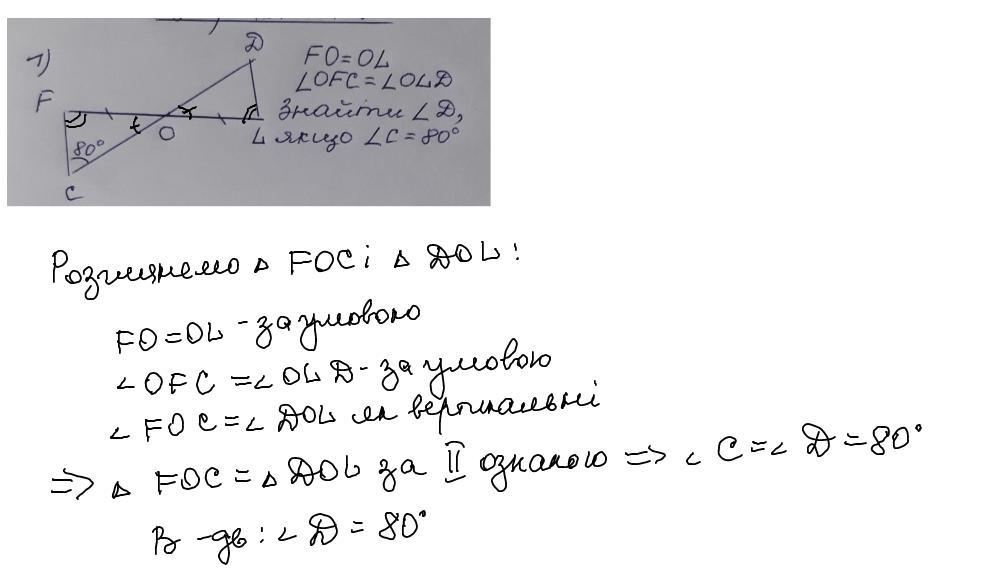 1)
D
FO=OL
∠OFC=∠OLD
F
Знайти ∠D,
O
L
якщо ∠C=80°
80°
C
Розглянемо △ FOC і △ DOL:
FO=OL - за умовою
∠OFC=∠OLD - за умовою
∠FOC=∠DOL як вертикальні
=> △ FOC=△DOL за II ознакою => ∠C=∠D=80°
В-дь: ∠D=80°